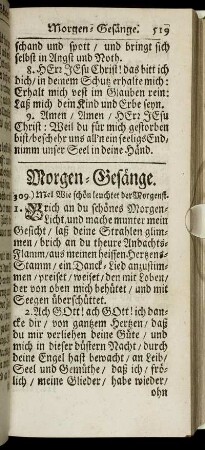 Morgen-Gesänge. 519
schand und spott / und bringt sich
selbst in Angst und Noth.
8. HErr JEsu Christ! das bitt ich
dich / in deinem Schutz erhalte mich:
Erhalt mich vest im Glauben rein:
Laß mich dein Kind und Erbe seyn.
9. Amen / Amen / HErr JEsu
Christ: Weil du für mich gestorben
bist / beschehr uns all'n ein seeligs End /
nimm unser Seel in deine Händ.
Morgen-Gesänge.
309) Mel. Wie schön leuchtet der Morgenst.
1. Brich an du schönes Morgen-
Licht / und mache munter mein
Gesicht / laß deine Strahlen glim-
men / brich an du theure Andachts-
Flamm / aus meinen heissen Hertzens-
Stamm / ein Danck-Lied anzustim-
men / preiset / weiset / den mit Loben /
der von oben mich behütet / und mit
Seegen überschüttet.
2. Ach GOtt! ach GOtt! ich dan-
cke dir / von gantzem Hertzen / daß
du mir verliehen deine Güte / und
mich in dieser düstern Nacht / durch
deine Engel hast bewacht / an Leib /
Seel und Gemüthe / daß ich / frö-
lich / meine Glieder / habe wieder /
ohn